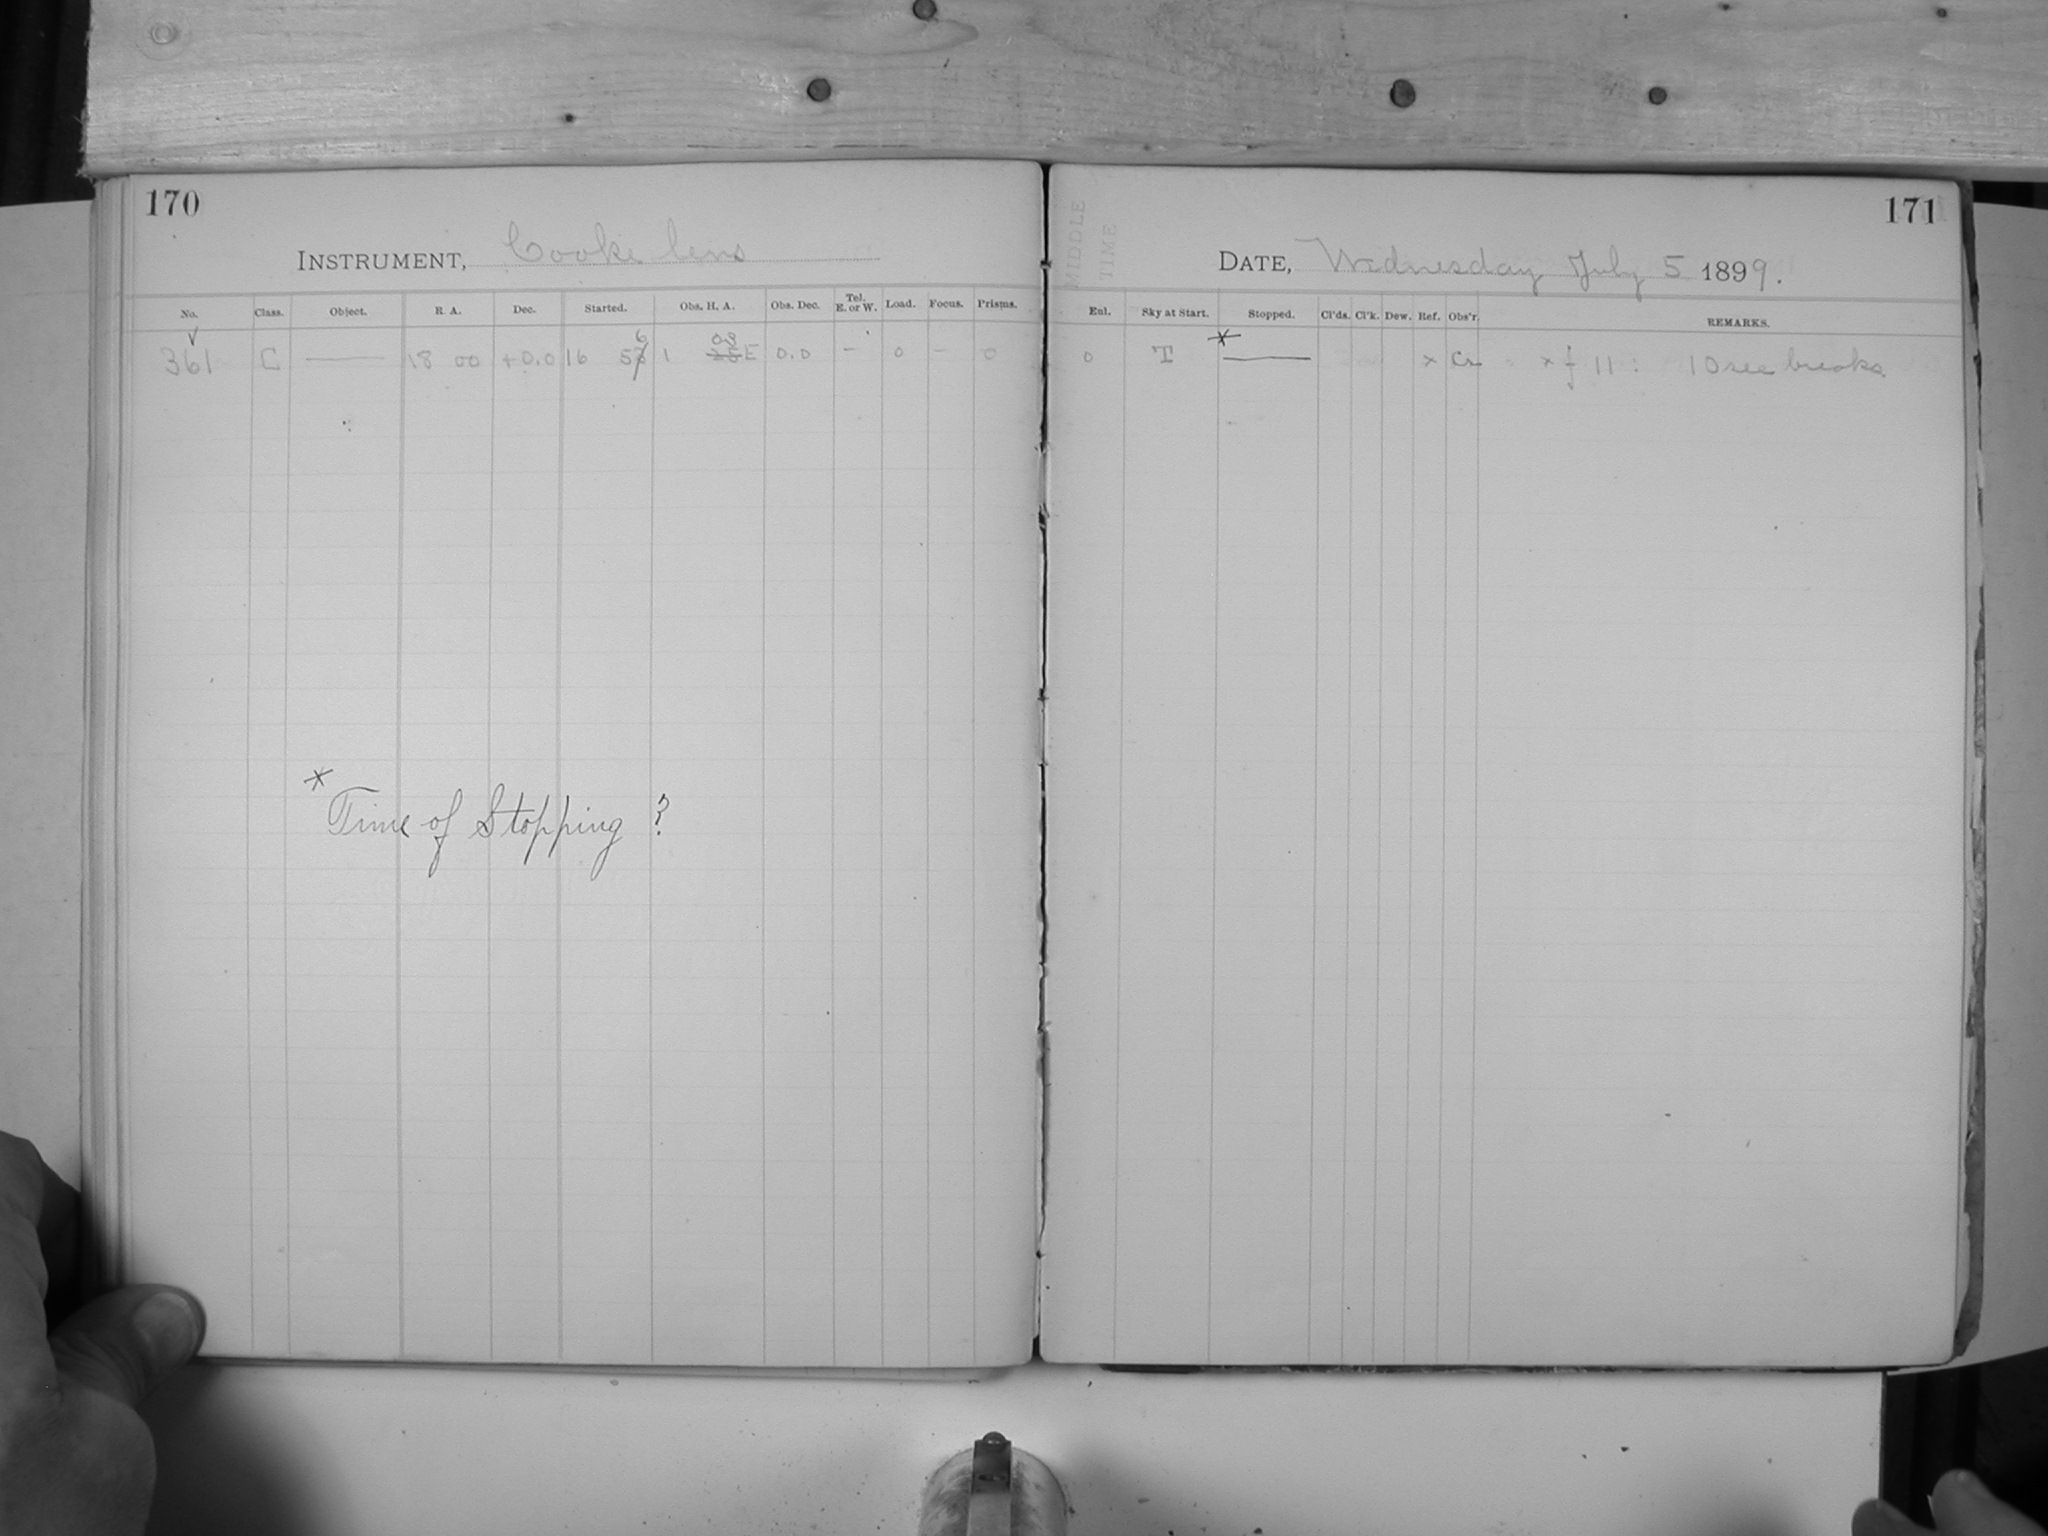 170
INSTRUMENT, Cooke lens
No. Class. Object. R. A. Dec. Started. Obs. H. A. Obs. Dec. Tel. E. or W. Load. Focus. Prisms.
361 C — 18 00 +0.0 16 56 1 08 E 0.0 – 0 – 0
*
Time of Stopping ?
171
MIDDLE
TIME
DATE, Wednesday July 5 1899.
Enl. Sky at Start. Stopped. Cl'ds. Cl'k. Dew. Ref. Obs'r. REMARKS.
0 T * — x Cr x f 11 : 10 sec breaks